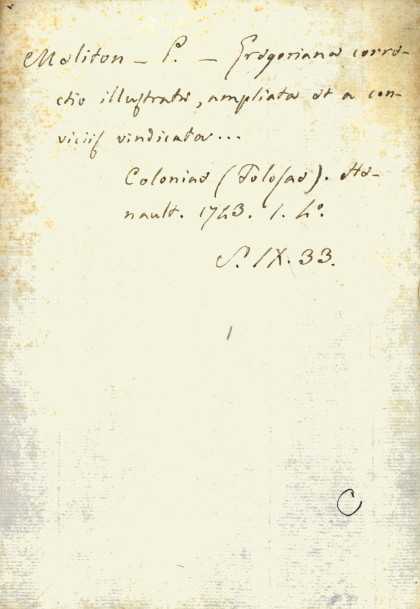 Meliton - P. - Gregoriana corre-
ctio illustrata, ampliata et a con-
viciis vindicata...
Coloniae (Tolosae). He-
nault. 1743. 1. 4°.
S. IX. 33.
C